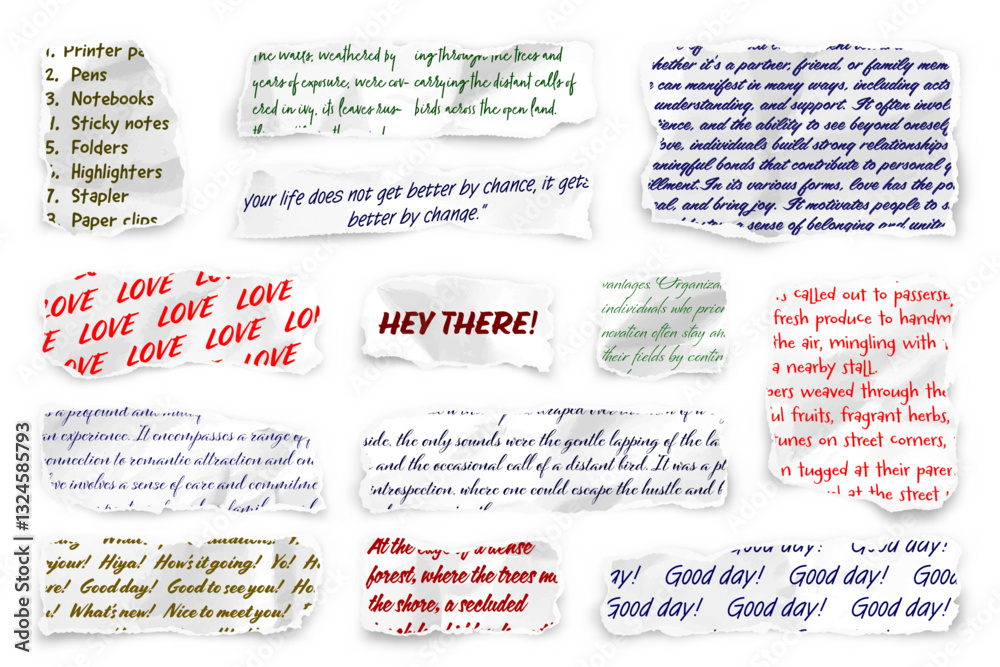 1. Printer pa
2. Pens
3. Notebooks
Sticky notes
5. Folders
Highlighters
7. Stapler
Paper clips
walls, weathered by
years of exposure, were cov-
ered in ivy, its leaves rus-
ing through the trees and
carrying the distant calls of
birds across the open land.
hether it's a partner, friend, or family mem
can manifest in many ways, including acts
understanding, and support. It often invol
ience, and the ability to see beyond oneself
ove, individuals build strong relationships
aningful bonds that contribute to personal g
llment. In its various forms, love has the po
al, and bring joy. It motivates people to s
sense of belonging and unity
your life does not get better by chance, it gets
better by change."
LOVE LOVE LO
LOVE LOVE LOVE LOVE
E LOVE LOVE LOVE LO
OVE LOVE LOVE
HEY THERE!
vantages. Organiza
individuals who prior
novation often stay an
their fields by contin
s called out to passersb
fresh produce to handm
the air, mingling with
a nearby stall.
pers weaved through the
ul fruits, fragrant herbs,
tunes on street corners,
n tugged at their paren
at the street
s a profound and
an experience. It encompasses a range of
onnection to romantic attraction and em
ove involves a sense of care and commitme
side, the only sounds were the gentle lapping of the la
and the occasional call of a distant bird. It was a pl
introspection, where one could escape the hustle and b
njour! Hiya! How's it going! Yo! H
re! Good day! Good to see you! Ho
! What's new! Nice to meet you!
At the edge of a dense
forest, where the trees m
the shore, a secluded
Good day! Good day!
ay! Good day! Good day! Good
Good day! Good day! Good day!
Adobe Stock | #1324585793